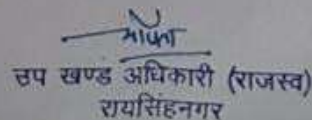 उप खण्ड अधिकारी (राजस्व)
रायसिंहनगर